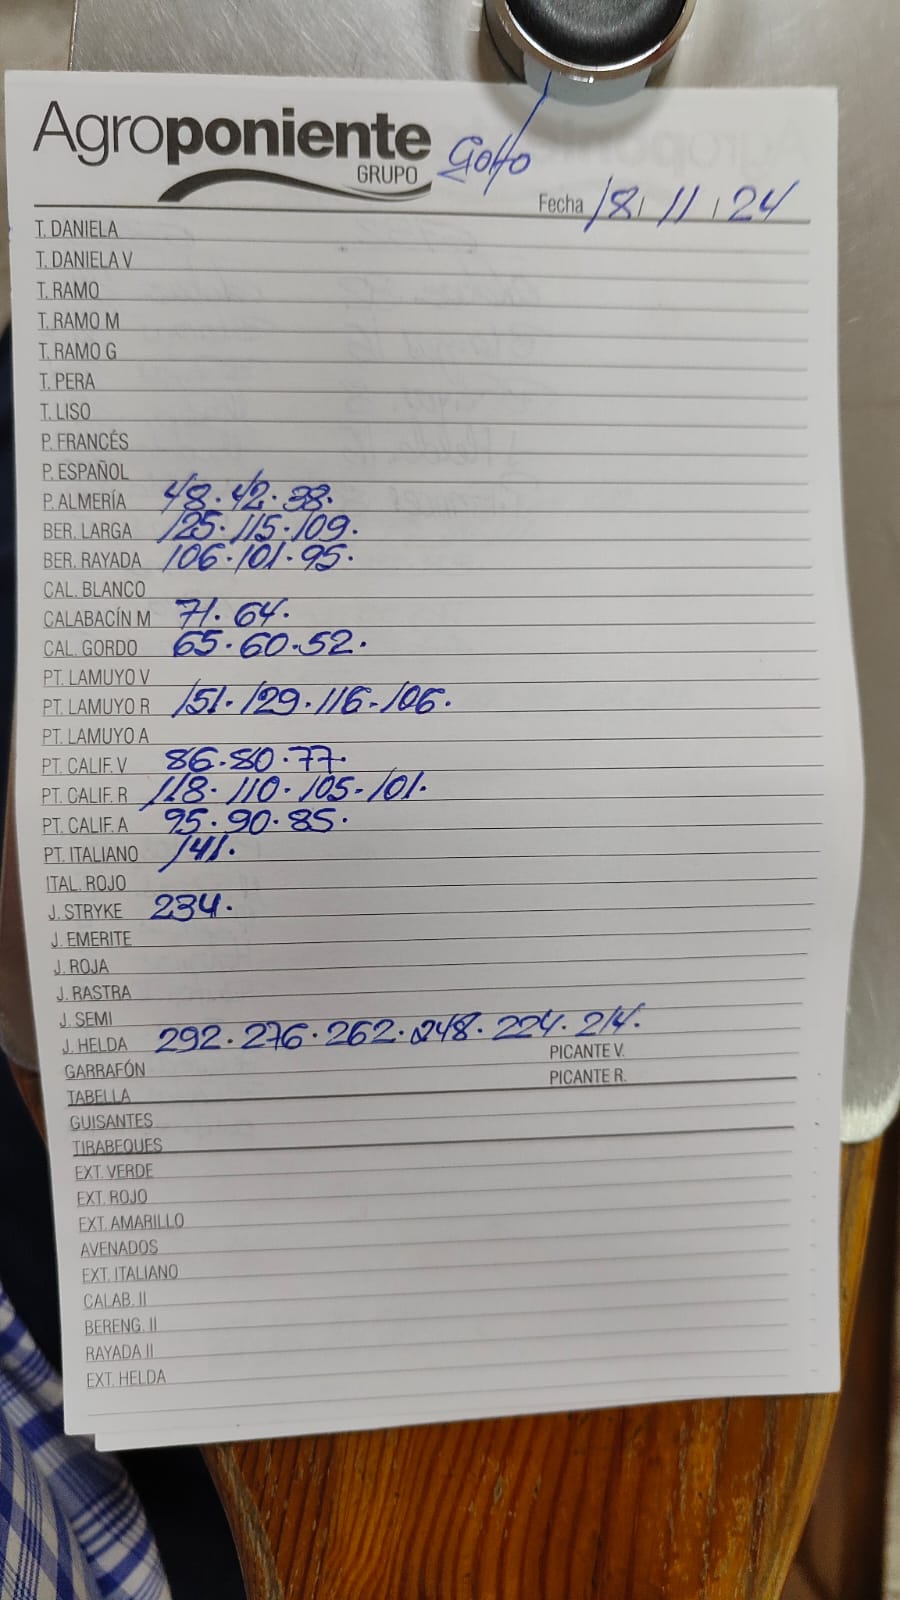 Agroponiente
GRUPO
Golfo
Fecha 18/ 11 / 24
T. DANIELA
T. DANIELA V
T. RAMO
T. RAMO M
T. RAMO G
T. PERA
T. LISO
P. FRANCÉS
P. ESPAÑOL
P. ALMERÍA 48. 42. 38.
BER. LARGA 125. 115. 109.
BER. RAYADA 106. 101. 95.
CAL. BLANCO
CALABACÍN M 71. 64.
CAL. GORDO 65. 60. 52.
PT. LAMUYO V
PT. LAMUYO R 151. 129. 116. 106.
PT. LAMUYO A
PT. CALIF. V 86. 80. 77.
PT. CALIF. R 118. 110. 105. 101.
PT. CALIF. A 95. 90. 85.
PT. ITALIANO 141.
ITAL. ROJO
J. STRYKE 234.
J. EMERITE
J. ROJA
J. RASTRA
J. SEMI
J. HELDA 292. 276. 262. 248. 224. 214.
GARRAFÓN PICANTE V.
TABELLA PICANTE R.
GUISANTES
TIRABEQUES
EXT. VERDE
EXT. ROJO
EXT. AMARILLO
AVENADOS
EXT. ITALIANO
CALAB. II
BERENG. II
RAYADA II
EXT. HELDA